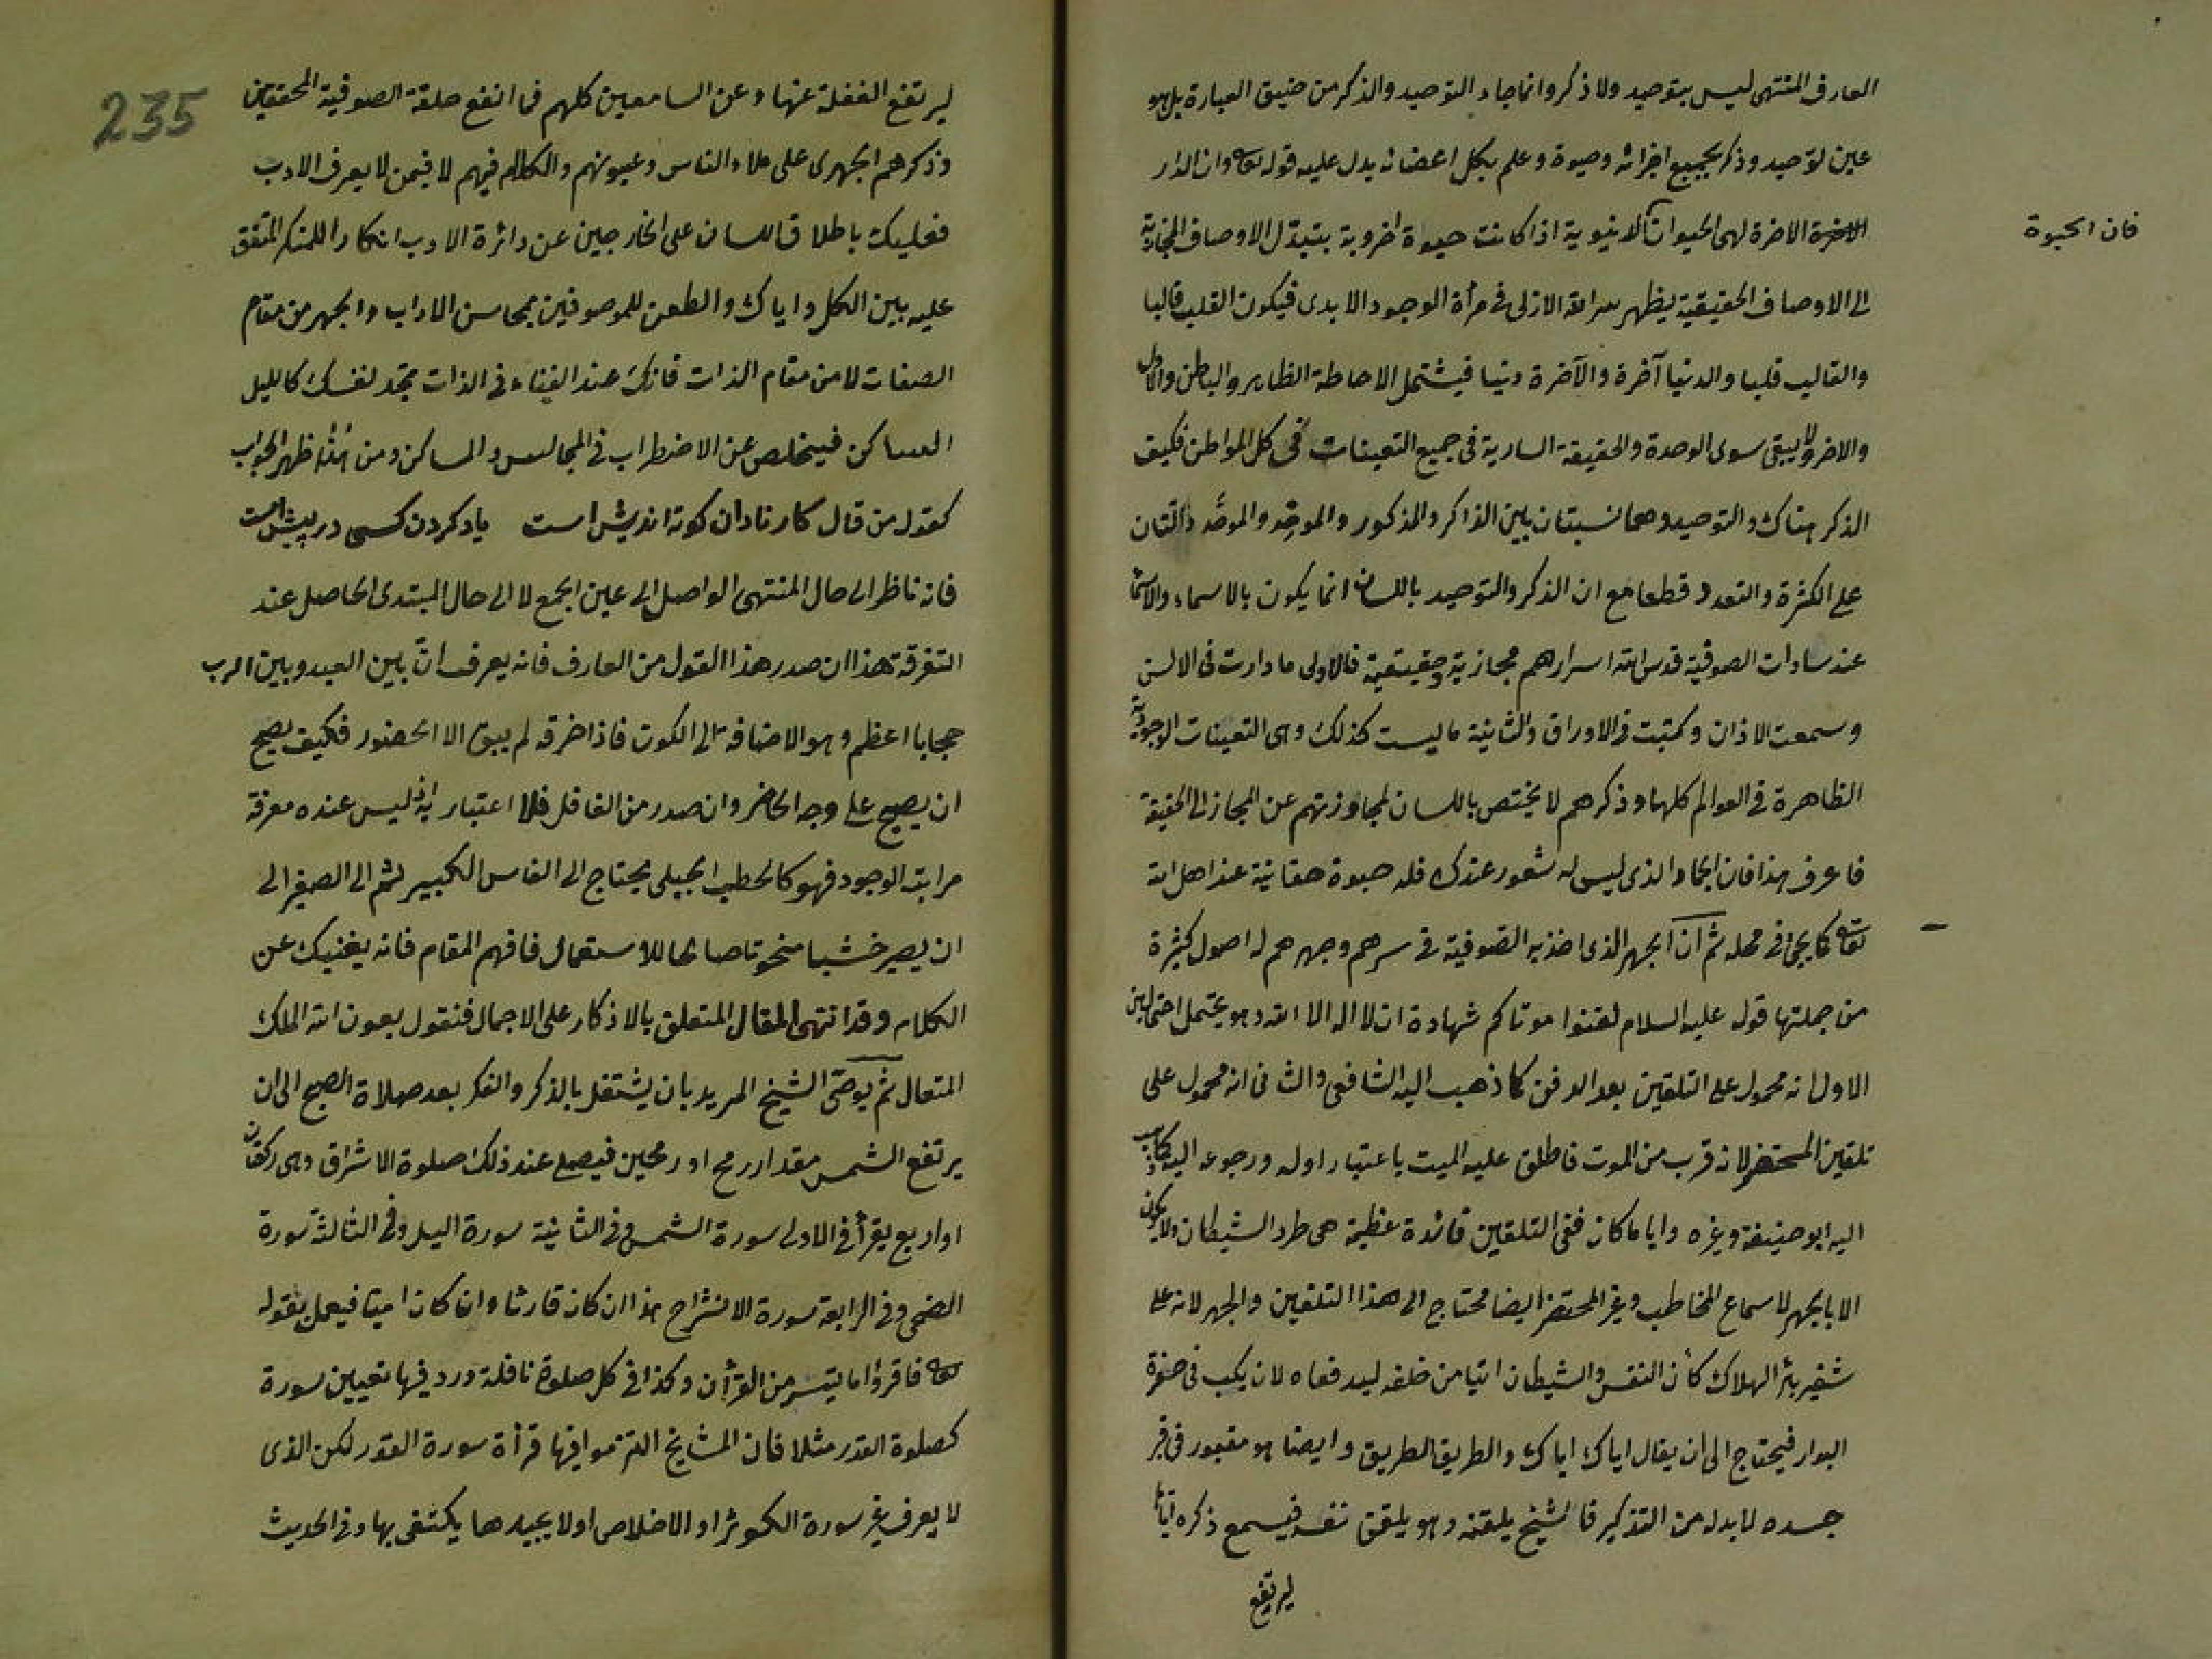 العارف المنتهى ليس بتوحيد ولا ذكر وانما جاء التوحيد والذكر من ضيق العبارة بل هو
عين توحيد وذكر بجميع اجزائه وحيوة وعلم بكل اعضائه يدل عليه قوله تعه وان الدار
الاخرة لهى الحيوان الدنيوية اذا كانت حيوة اخروية بتبدل الاوصاف المجازية
فان الحيوة
الى الاوصاف الحقيقية يظهر سر الله الازلى فى مرأة الوجود الابدى فيكون القلب قالبا
والقالب قلبا والدنيا آخرة والآخرة دنيا فيشتمل الاحاطة الظاهر والباطن والاول
والاخر ولا يبقى سوى الوحدة والحقيقة السارية فى جميع التعينات فى كل المواطن فكيف
الذكر هناك والتوحيد وهما نسبتان بين الذاكر والمذكور والموحِّد والموحَّد دالتان
على الكثرة والتعدد قطعا مع ان الذكر والتوحيد باللسان انما يكون بالاسماء والاسماء
عند سادات الصوفية قدس الله اسرارهم مجازية وحقيقية فالاولى ما دارت فى الالسن
وسمعت الاذان وكتبت فى الاوراق والثانية ما ليست كذلك وهى التعينات الوجودية
الظاهرة فى العوالم كلها وذكرهم لا يختص باللسان لمجاوزتهم عن المجاز الى الحقيقة
فاعرف هذا فان الجماد الذى ليس له شعور عندك فله حيوة حقانية عند اهل الله
تعالى كما يجئ فى محله ثم ان الجهر الذى اخذ به الصوفية فى سرهم وجهرهم له اصول كثيرة
من جملتها قوله عليه السلام لقنوا موتاكم شهادة ان لا اله الا الله وهو يحتمل احتمالين
الاول انه محمول على التلقين بعد الدفن كما ذهب اليه الشافعى والثانى انه محمول على
تلقين المحتضر لانه قرب من الموت فاطلق عليه الميت باعتبار اوله ورجوعه اليه كما ذهب
اليه ابو حنيفة وغيره وايا ما كان ففى التلقين فائدة عظيمة هى طرد الشيطان ولا يكون
الا بالجهر لاسماع المخاطب وغير المحتضر ايضا محتاج الى هذا التلقين والجهر لانه على
شفير بئر الهلاك كأن النفس والشيطان اتيا من خلفه ليدفعاه لان يكب فى حفرة
البوار فيحتاج الى ان يقال اياك اياك والطريق الطريق وايضا هو مقبور فى قبر
جسده لا بد له من التذكير فالشيخ يلقنه وهو يلقن نفسه فيسمع ذكره اياها
ليرتفع
235
ليرتفع الغفلة عنها وعن السامعين كلهم فما انفع حلقة الصوفية المحققين
وذكرهم الجهرى على ملاء الناس وعيونهم والكلام فيهم لا فيمن لا يعرف الادب
فعليك باطلاق اللسان على الخارجين عن دائرة الادب انكارا للمنكر المتفق
عليه بين الكل واياك والطعن للموصوفين بمحاسن الاداب والجهر من مقام
الصفات لا من مقام الذات فانك عند الفناء فى الذات تجد نفسك كالليل
الساكن فيتخلص عن الاضطراب فى المجالس والمساكن ومن هذا ظهر الجواب
كقول من قال كار نادان كوته انديش است ياد كردن كسى در پيش است
فانه ناظر الى حال المنتهى الواصل الى عين الجمع لا الى حال المبتدى الحاصل عند
التفرقة هذا ان صدر هذا القول من العارف فانه يعرف ان بين العبد وبين الرب
حجابا اعظم وهو الاضافة الى الكون فاذا خرقه لم يبق الا الحضور فكيف يصح
ان يصيح على وجه الحاضر وان صدر من الغافل فلا اعتبار به اذ ليس عنده معرفة
مراتب الوجود فهو كالحطب الجبلى يحتاج الى الفاس الكبير ثم الى الصغير الى
ان يصير خشبا منحوتا صالحا للاستعمال فافهم المقام فانه يغنيك عن
الكلام وقد انتهى المقال المتعلق بالاذكار على الاجمال فنقول بعون الله الملك
المتعال ثم يوصى الشيخ المريد بان يشتغل بالذكر والفكر بعد صلاة الصبح الى ان
يرتفع الشمس مقدار رمح او رمحين فيصلى عند ذلك صلوة الاشراق وهى ركعتان
او اربع يقرأ فى الاولى سورة الشمس وفى الثانية سورة اليل وفى الثالثة سورة
الضحى وفى الرابعة سورة الانشراح هذا ان كان قارئا وان كان اميا فيعمل بقوله
تعه فاقرؤا ما تيسر من القرأن وكذا فى كل صلوة نافلة ورد فيها تعيين سورة
كصلوة القدر مثلا فان المشايخ التزموا فيها قرأة سورة القدر لكن الذى
لا يعرف غير سورة الكوثر او الاخلاص اولا يجيدها يكتفى بها وفى الحديث